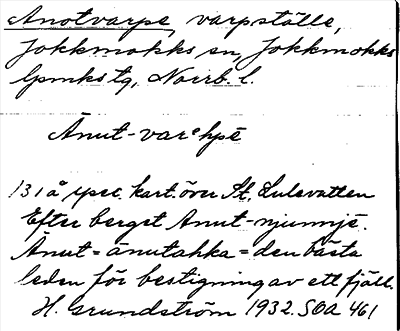 Anotvarpe, varpställe,
Jokkmokks sn, Jokkmokks
lpmks tg, Norrb. l.
Änut-varᵉhpē
131 å spec. kart. över St. Lulevatten
Efter berget Änut-njunnjē.
Änut = änutahka = den bästa
leden för bestigning av ett fjäll.
H. Grundström 1932. SOA 461